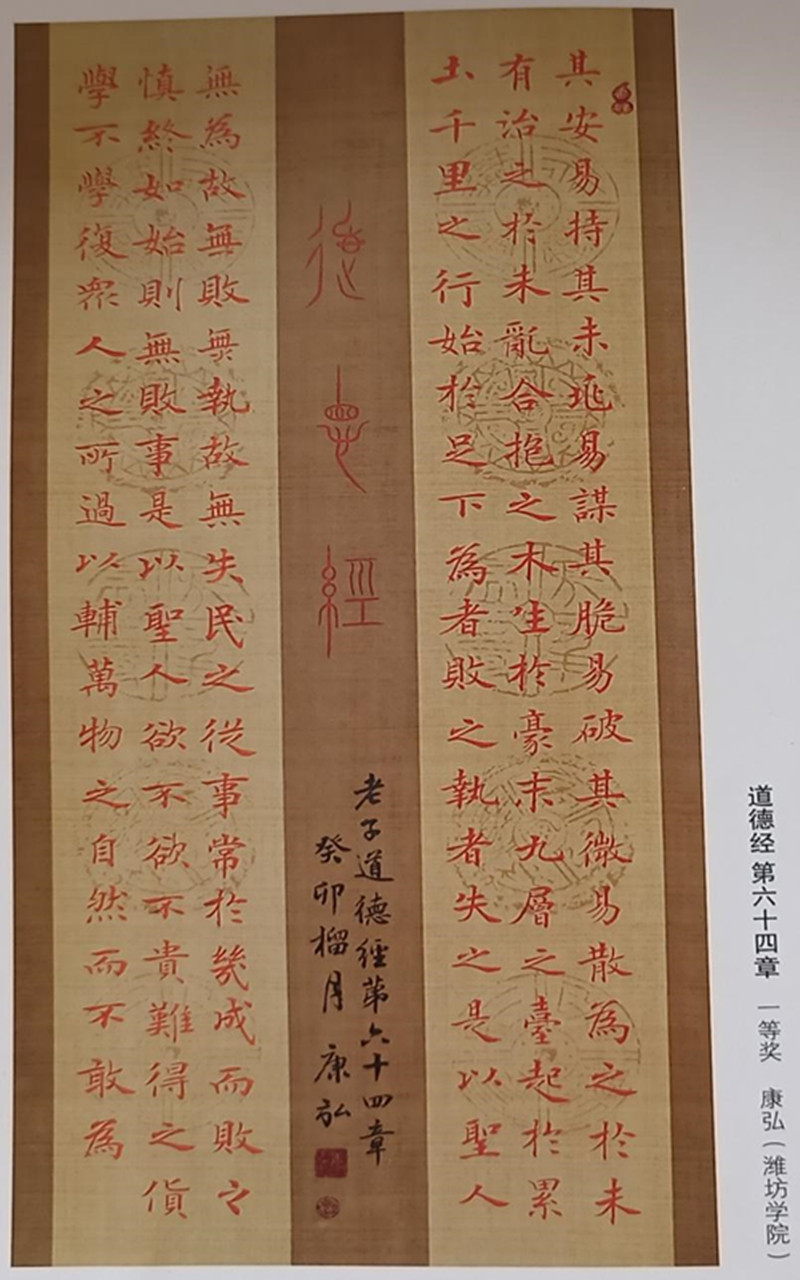 其安易持其未兆易謀其脆易破其微易散為之於未
有治之於未亂合抱之木生於豪末九層之臺起於累
土千里之行始於足下為者敗之執者失之是以聖人
道惪經
老子道德經第六十四章
癸卯榴月 康弘
無為故無敗無執故無失民之從事常於幾成而敗之
慎終如始則無敗事是以聖人欲不欲不貴難得之貨
學不學復眾人之所過以輔萬物之自然而不敢為
道德经 第六十四章 一等奖 康弘（潍坊学院）